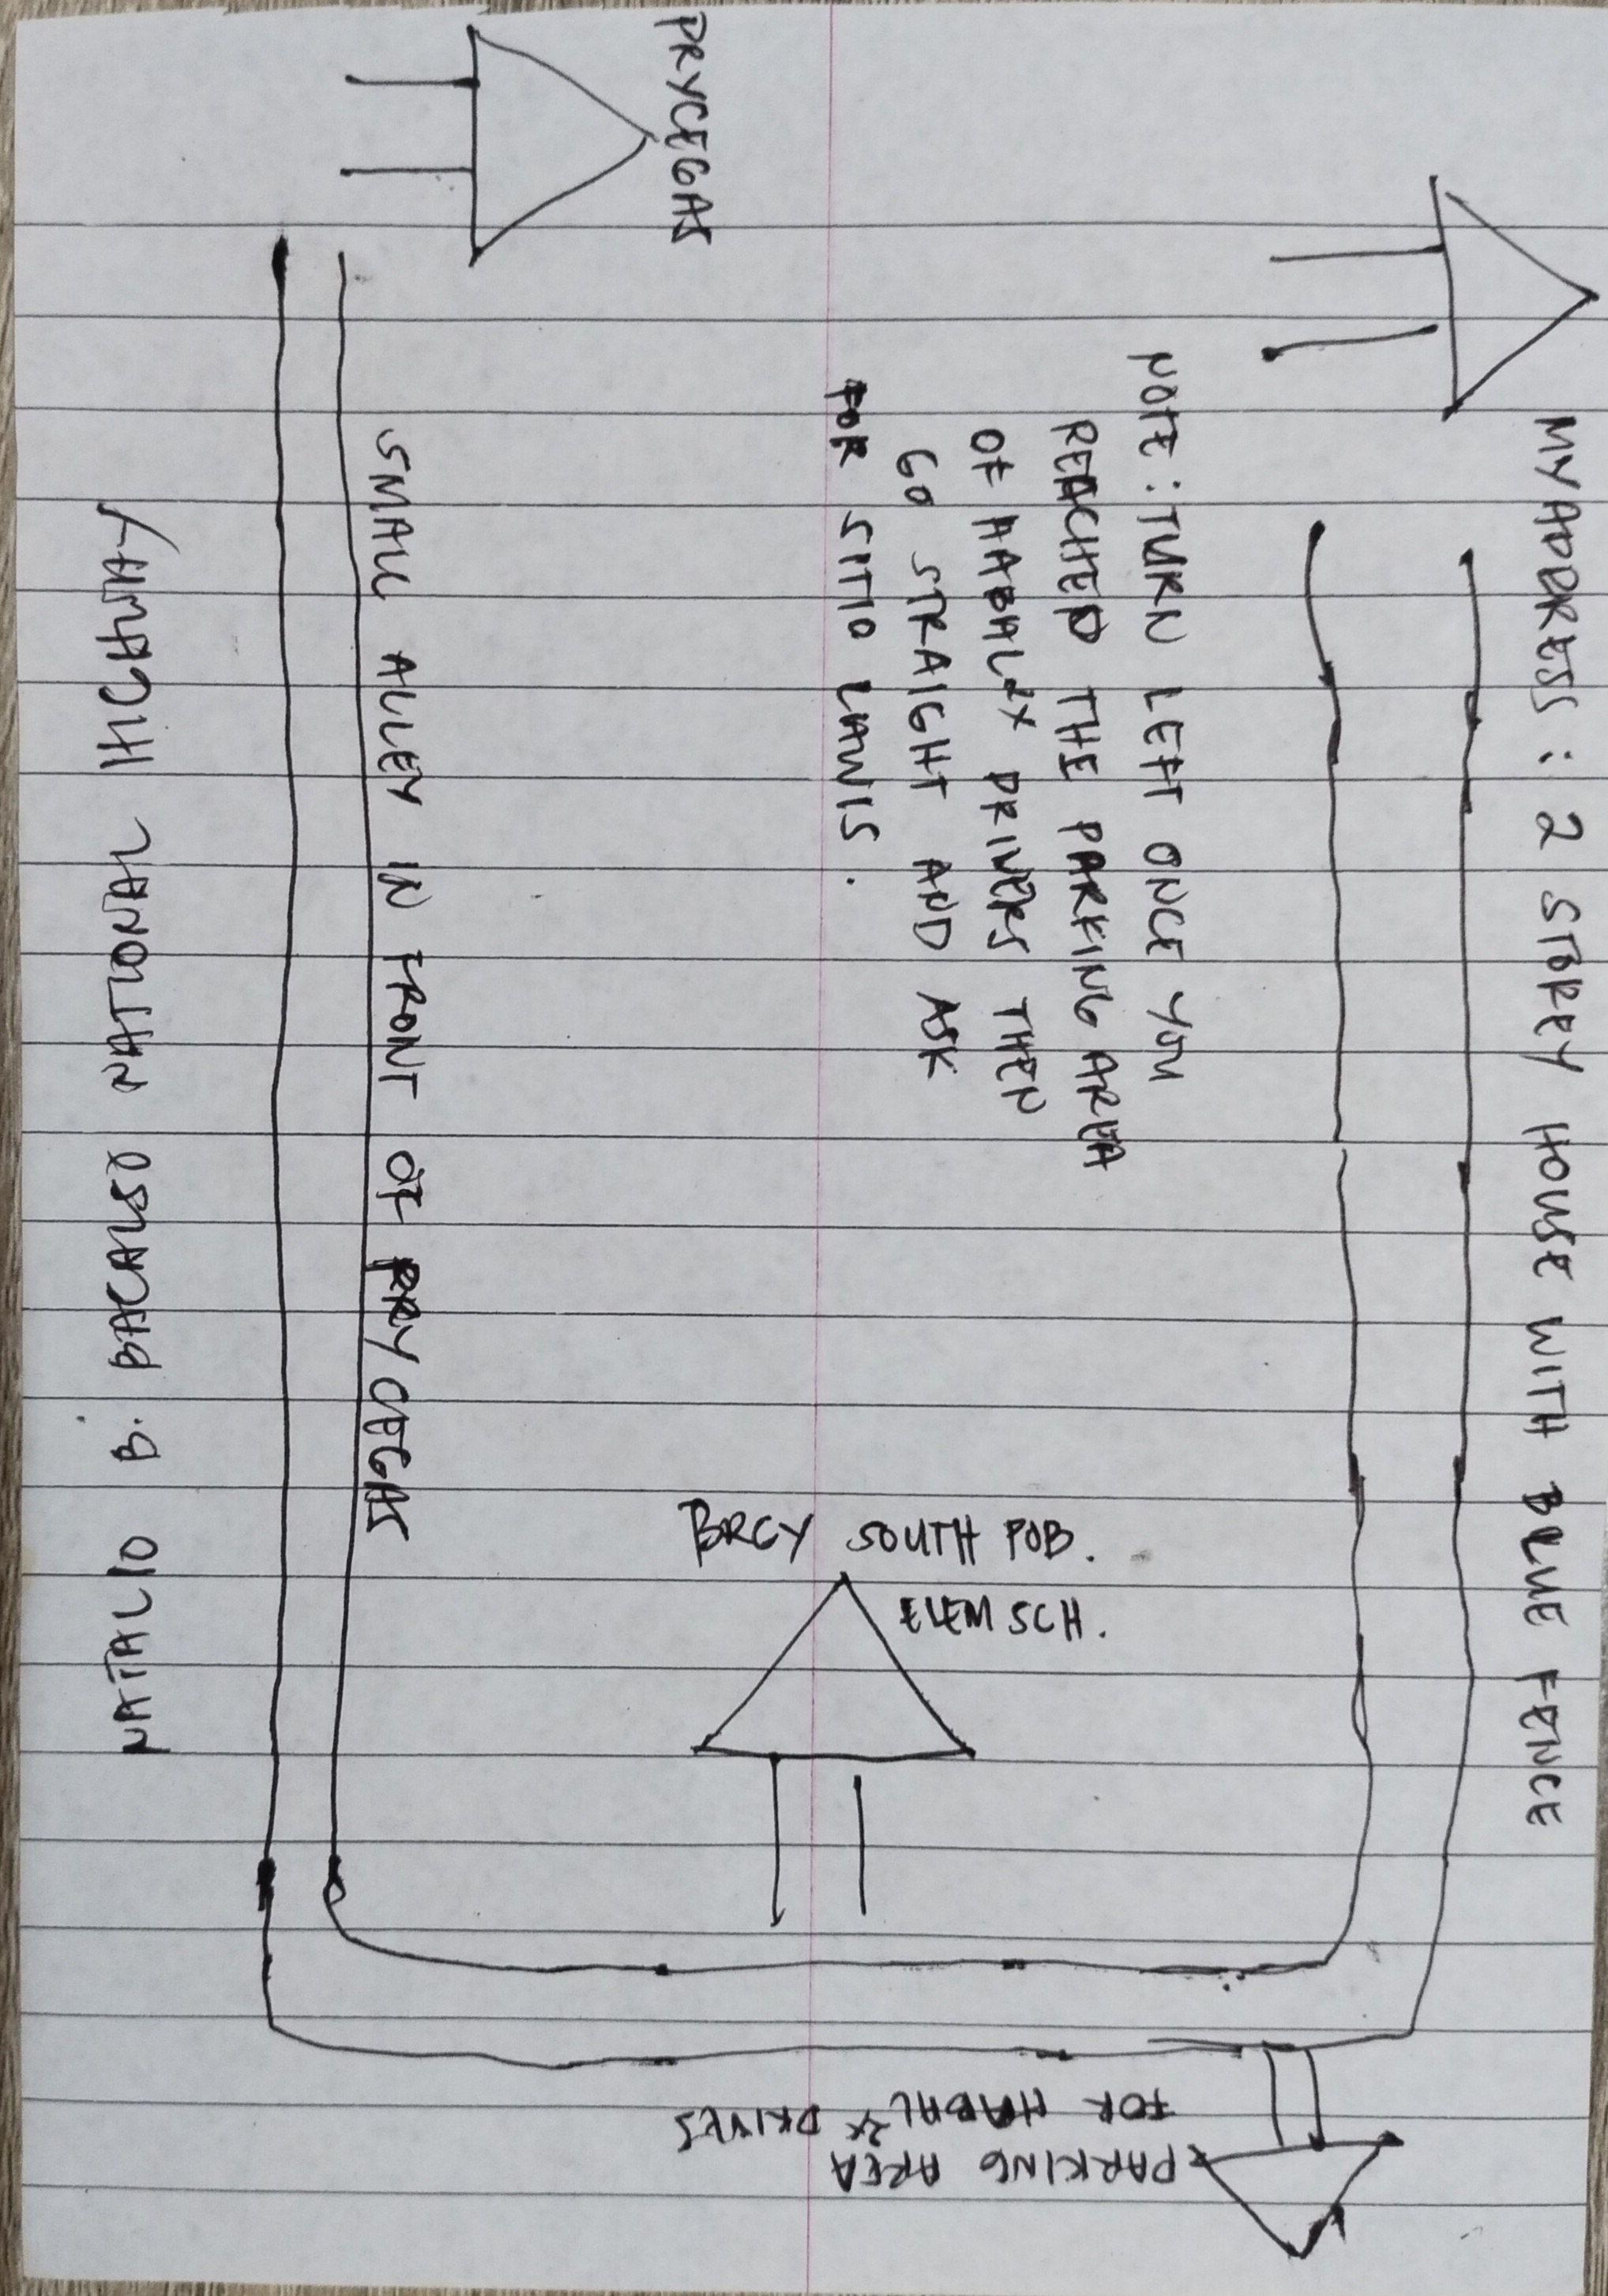 MY ADDRESS : 2 STOREY HOUSE WITH BLUE FENCE
NOTE : TURN LEFT ONCE YOU
REACHED THE PARKING AREA
OF HABHAL2X DRIVERS THEN
GO STRAIGHT AND ASK
FOR SITIO LAWIS.
PRYCEGAS
SMALL ALLEY IN FRONT OF PRYCEGAS
NATALIO B. BACALSO NATIONAL HIGHWAY
BRGY SOUTH POB.
ELEM SCH.
PARKING AREA
FOR HABAL2X DRIVES